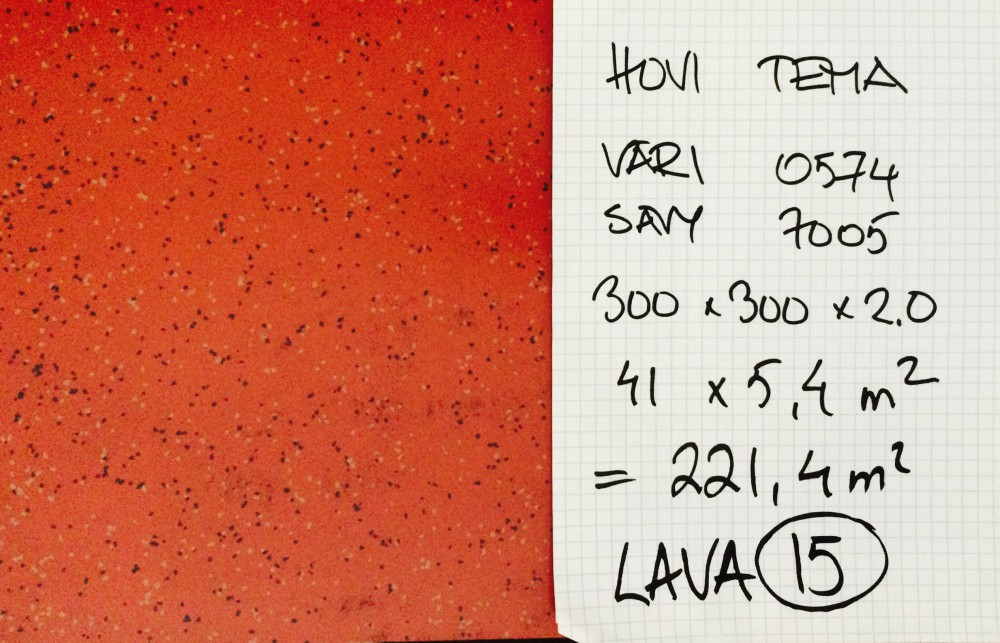 HOVI TEMA
VÄRI 0574
SÄVY 7005
300 x 300 x 2.0
41 x 5,4 m²
= 221,4 m²
LAVA 15